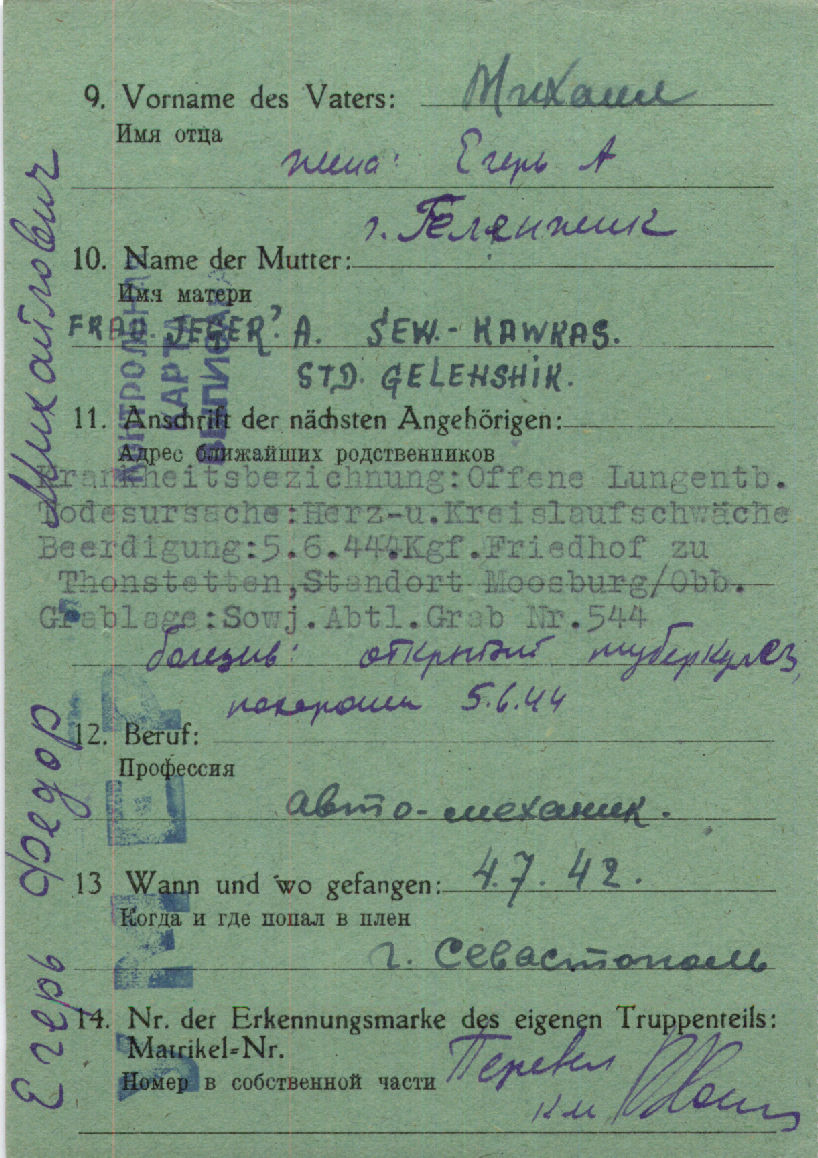 9. Vorname des Vaters: Михаил
Имя отца
жена: Егерь А
г. Гелянжик
10. Name der Mutter:
Имя матери
FRAU. JEGER' A. SEW.- KAWKAS.
STD. GELENSHIK.
11. Anschrift der nächsten Angehörigen:
Адрес ближайших родственников
Krankheitsbezichnung:Offene Lungentb.
Todesursache:Herz-u.Kreislaufschwäche
Beerdigung:5.6.444.Kgf.Friedhof zu
Thonstetten,Standort Moosburg/Obb.
Grablage:Sowj.Abtl.Grab Nr.544
болезнь: открытый туберкулез,
похоронен 5.6.44
12. Beruf:
Профессия
авто-механик.
13 Wann und wo gefangen: 4.7.42.
Когда и где попал в плен
г. Севастополь
14. Nr. der Erkennungsmarke des eigenen Truppenteils:
Matrikel-Nr.
Номер в собственной части
Перевел
Егерь Федор Михайлович
КОНТРОЛЬНАЯ
КАРТА
ВЫПИСАНА
УМЕР